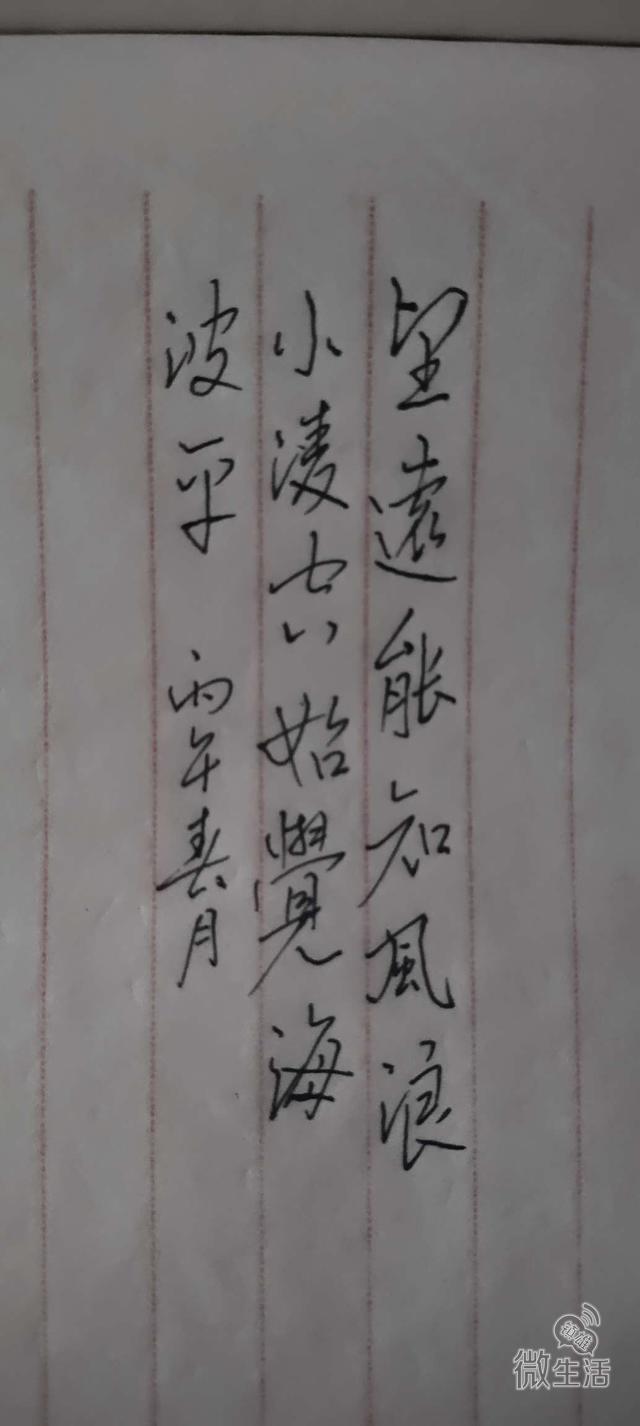 望遠能知風浪
小淩空始覺海
波平 丙午春月
鎮雄
微生活